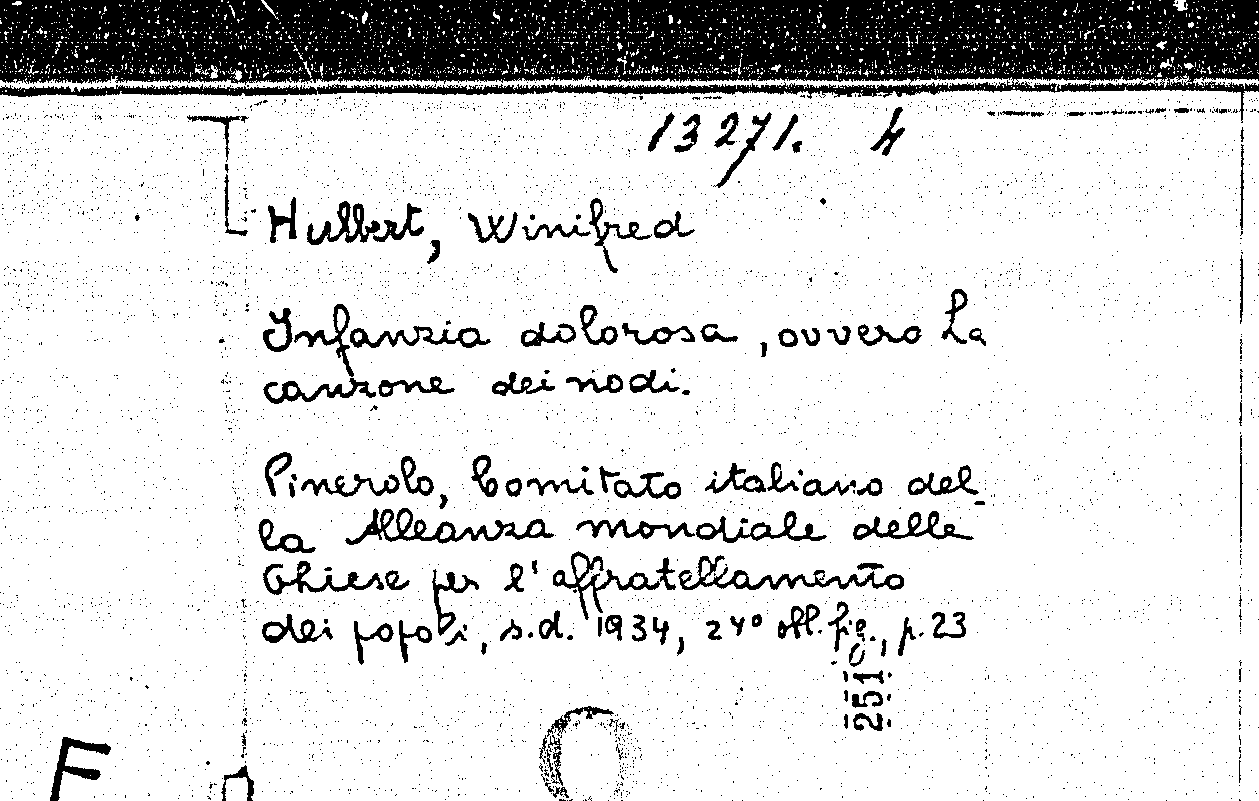 13271. 4
Hulbert, Winifred
Infanzia dolorosa, ovvero La
canzone dei nodi.
Pinerolo, Comitato italiano del_
la Alleanza mondiale delle
Chiese per l'affratellamento
dei popoli, s.d. 1934, 24° obl. fig., p. 23
251
F